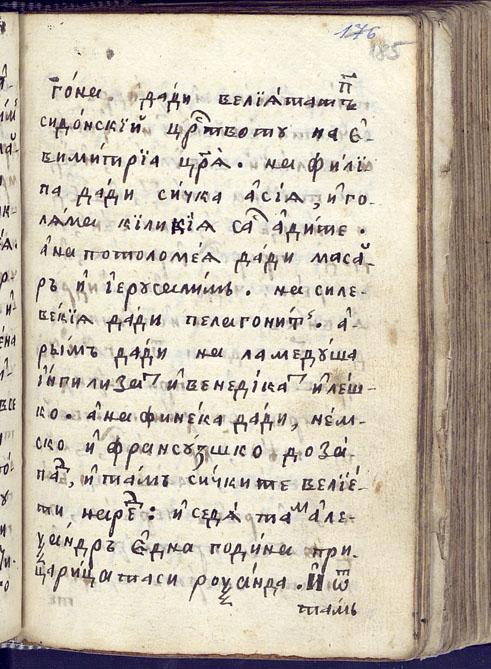 176
185
гóна дади велїѧтатъ п
сидóнскїй цр҃твоту на є҆-
вимитрїа цр҃ѧ . на филї
па дади сичка а҆сїѧ , и҆ го-
лѧма килikїѧ са адите .
а҆на потоломеѧ дади масѧ
ръ и҆ і҆єрусалимь . на силе-
векїѧ дади пелагонит . а҆
рымъ дади на ламедꙋша
и҆ венедїка и҆ лѣш-
ко . а҆на финека дади , нѣм-
ско и҆ францушко до за
па , и҆ тамъ сичките велїе-
ти нарѐ : и҆ седѧ тамъ але-
ѯандръ є҆дна подина при
царицатаси роѯанда . И҆ ѿ
тамь